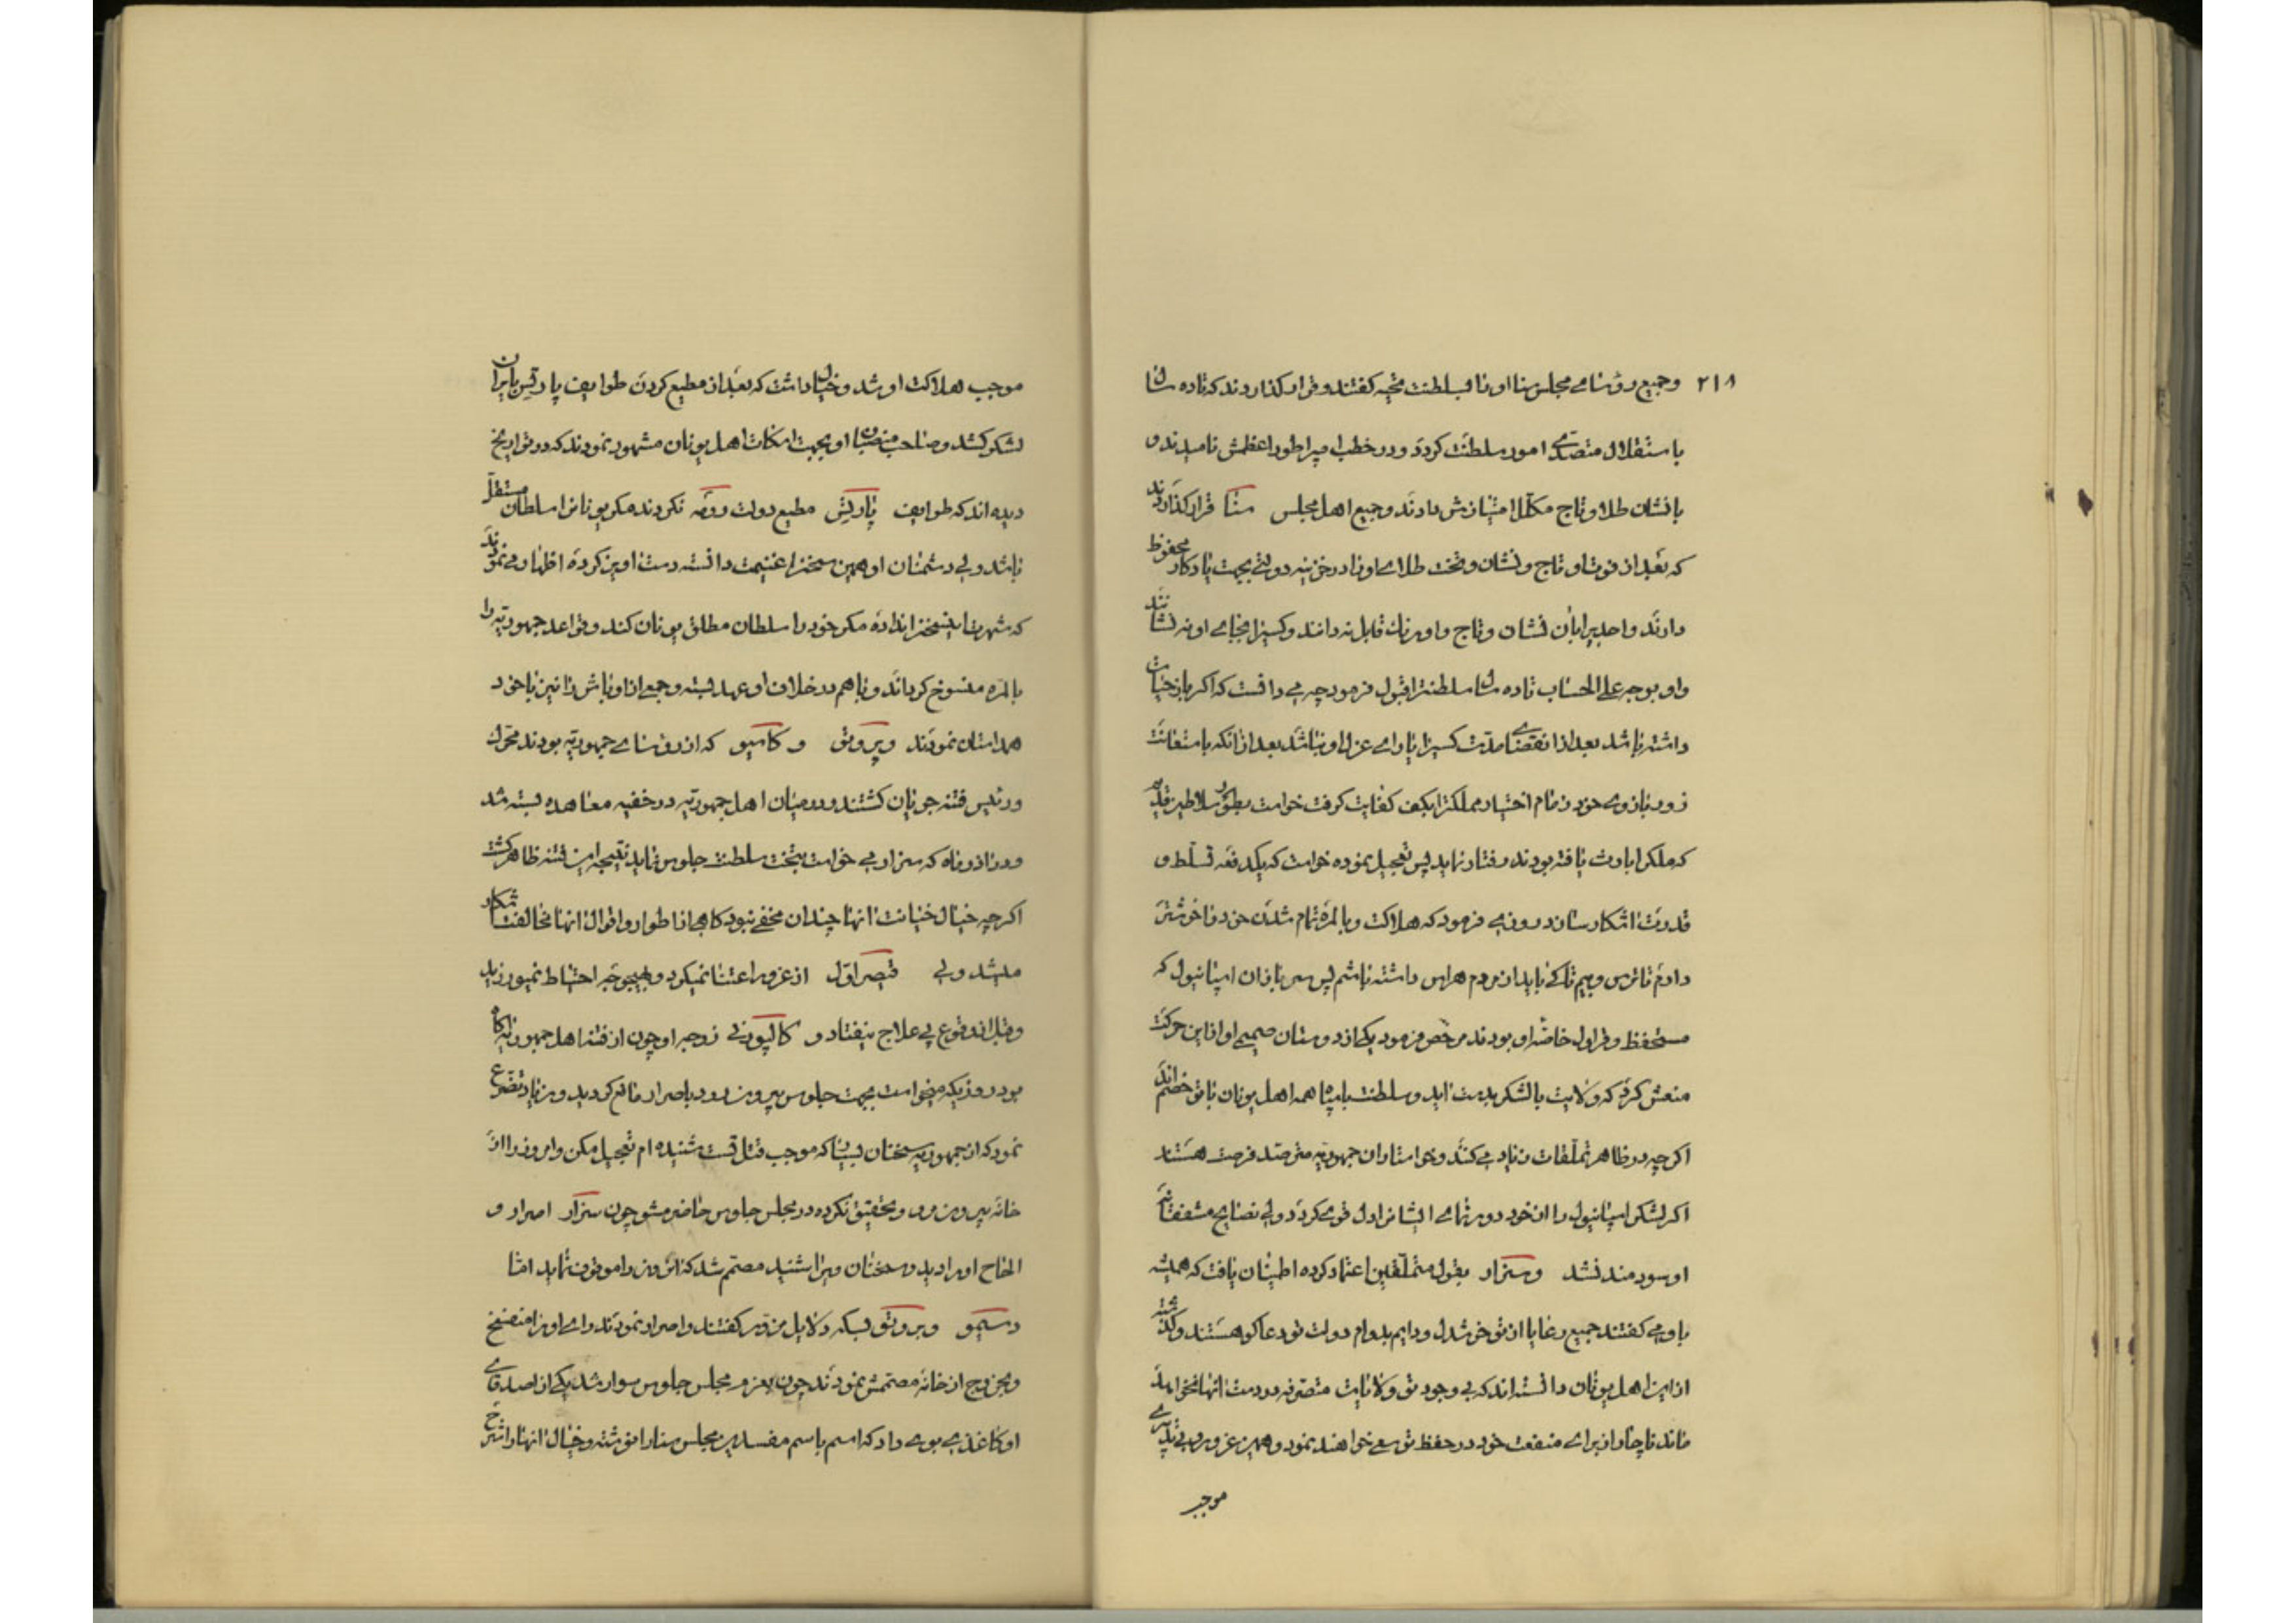 ۲۱۸
وجمیع رؤسای مجلس سنا او را بسلطنت تحیه کفتند و قرار کذاردند که تا ده سال
باستقلال متصدی امور سلطنت کردد و در خطب امپراطور اعظمش نامیدند و
بانشان طلا و تاج مکلل امتیازش دادند و جمیع اهل مجلس سنا قرار کذاردند
که بعد از فوت او تاج و نشان و تخت طلای او را در خزینه دولتی بجهت یادکار محفوظ
دارند و احدیرا بآن نشان و تاج و اورنک قابل ندانند و کسیرا بجای او ننشانند
واو بوجه علی الحساب تا ده سال سلطنترا قبول فرمود چه می دانست که اکر باز حیات
داشته باشد بعد از انقضای مدت کسیرا یارای عزل او نباشد بعد از آنکه باستعانت
زور بازوی خود زمام اختیار مملکترا بکف کفایت کرفت خواست بطور سلاطین قدیم
که ملک را بارث یافته بودند رفتار نماید پس تعجیل نموده خواست که یکدفعه تسلط و
قدرت اشکار سازد روزی فرمود که هلاکت و بالمره تمام شدن خود را خوشتر
دارم تا ترس و بیم تا کی باید از مردم هراس داشته باشم پس سربازان اسپانیول که
مستحفظ و قراول خاصه او بودند مرخص فرمود یکی از دوستان صمیمی او از این حرکت
منعش کرد که ولایت بالشکر بدست اید و سلطنت با سپاه همه اهل یونان با تو خصم اند
اکرچه در ظاهر تملقات زیاد می کنند و خواستاران جمهوریه مترصد فرصت هستند
اکر لشکر اسپانیول را از خود دور نمای ایشانرا دل قوی کردد ولی نصایح مشفقانه
او سودمند نشد و سزار بقول متملقین اعتماد کرده اطمینان یافت که همیشه
باو می کفتند جمیع رعایا از تو خوشدل و دایم بدوام دولت تو دعا کو هستند و کذشته
از این اهل یونان دانسته اند که بی وجود تو ولایات متصرفه در دست آنها نخواهد
ماند ناچار از برای منفعت خود در حفظ تو سعی خواهند نمود و همین غرور و بی تدبیری
موجب
موجب هلاکت او شد و خیال داشت که بعد از مطیع کردن طوایف پارتیس بایران
لشکر کشد و صاحب منصبان او بجهت اسکات اهل یونان مشهور نمودند که در تواریخ
دیده اند که طوایف پارتیس مطیع دولت رومه نکردند مکر یونانرا سلطان مستقل
باشد ولی دشمنان او همین سخنرا غنیمت دانسته دست اویز کرده اظهار می نمودند
که شهرت اینسخنرا نداده مکر خود را سلطان مطلق یونان کند و قواعد جمهوریه را
بالمره منسوخ کرداند و باهم در خلاف او عهد بسته و جمعی از اوباش را نیز با خود
همداستان نمودند و بروتق و کاسیو که از رؤسای جمهوریه بودند محرک
و رئیس فتنه جویان کشتند و در میان اهل جمهوریه در خفیه معاهده بسته شد
و در ان روز ماه که سزار می خواست بتخت سلطنت جلوس نماید نتیجه این فتنه ظاهر کشت
اکرچه خیال خیانت آنها چندان مخفی نبود کاهی از اطوار و اقوال آنها مخالفت اشکار
میشد ولی قیصر اول از غرور اعتنا نمیکرد و بهیچوجه احتیاط نمیورزید
و قبل از وقوع پی علاج نیفتاد و کالپورنی زوجه او چون از فتنه اهل جمهوریه اکاه
بود روزیکه میخواست بجهت جلوس بیرون رود باصرار مانع کردید و زیاد تضرع
نمود که از جمهوریه سخنان بسیار که موجب قتل تست شنیده ام تعجیل مکن و امروز را از
خانه بیرون مرو و تحقیق نکرده در مجلس جلوس حاضر مشو چون سزار اصرار و
الحاح او را دید و سخنان ویرا شنید مصمم شد که آنروز را موقوف نماید اما
دسیمو و بروتق بسکه دلایل مزوره کفتند و اصرار نمودند رای او را منفسخ
و بخروج از خانه مصممش نمودند چون بعزم مجلس جلوس سوار شد یکی از اصدقای
او کاغذی بوی داد که اسم باسم مفسدین مجلس سنا را نوشته و خیال آنها را شرح